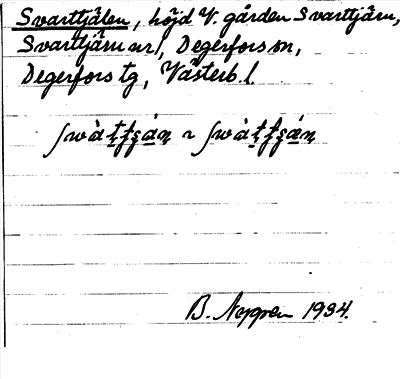 Svarttjälen, höjd V. gården Svarttjärn,
Svarttjärn nr 1, Degerfors sn,
Degerfors tg, Västerb. l.
B. Nygren 1934.